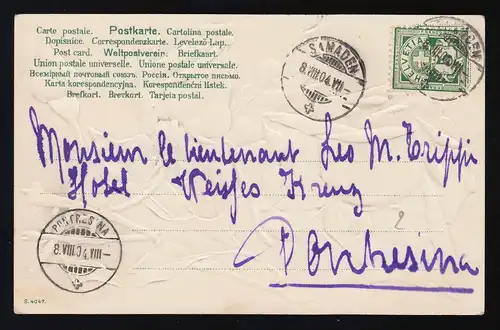 Carte postale. Postkarte. Cartolina postale.
Dopisnice. Correspondenzkarte. Levelező Lap.
Post card. Weltpostverein. Briefkaart.
Union postale universelle. Unione postale universale.
Всемірный почтовый союзъ. Россія. Открытое письмо.
Karta korespondencyjna. Korespondenční lístek.
Brefkort. Brevkort. Tarjeta postal.
SAMADEN
8.VIII.04.VII–
HELVETIA
Monsieur le lieutenant Leo M. Trippi
Hotel Weisses Kreuz
2
Pontresina
PONTRESINA
8.VIII.04.VIII–
S. 4047.